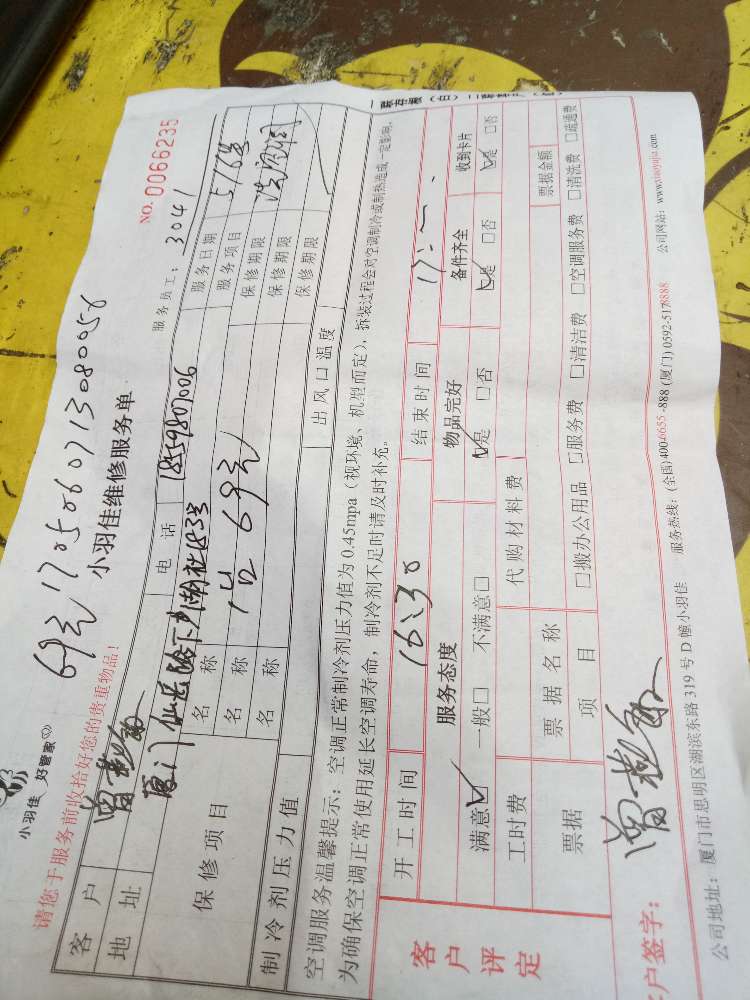 小羽佳 好管家
69元 1705060713080056
小羽佳维修服务单
NO. 0066235
请您于服务前收拾好您的贵重物品!
服务员工: 3041
客户
电话 18559807006
服务日期
地址 厦门
服务项目
保修项目
名称
保修期限
名称 1台 69元
保修期限
名称
保修期限
制冷剂压力值
出风口温度
空调服务温馨提示:空调正常制冷剂压力值为 0.45mpa(视环境、机型而定),拆装过程会对空调制冷或制热造成一定影响,
为确保空调正常使用延长空调寿命,制冷剂不足时请及时补充。
客户评定
开工时间 16:30 结束时间 17:
服务态度 物品完好 备件齐全 收到卡片
满意☑ 一般□ 不满意□ ☑是 □否 ☑是 □否 ☑是 □否
工时费 代购材料费
票据 票据名称 票据金额
项目 □搬办公用品 □服务费 □清洁费 □空调服务费 □清洗费 □疏通费
户签字:
公司地址:厦门市思明区湖滨东路 319 号 D 幢小羽佳 服务热线:(全国)4006655-888 (厦门) 0592-5178888 公司网站:www.xiaoyujia.com